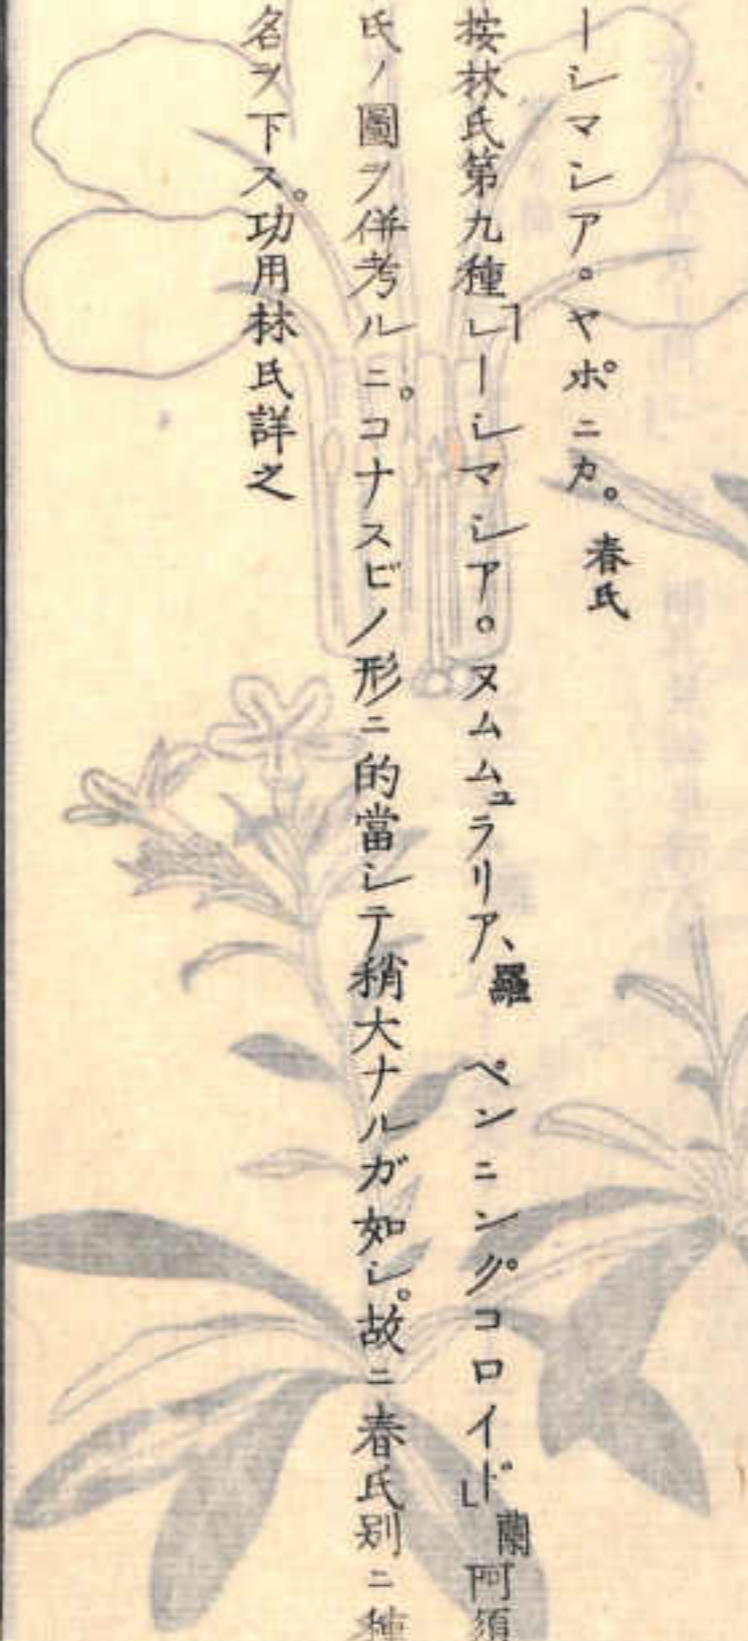 ーシマシア。ヤポニカ。春氏
按林氏第九種「レーシマシア。ヌムムュラリア、羅 ペンニングコロイド」蘭 阿須
氏ノ圖ヲ併考ルニ。コナスビノ形ニ的當シテ稍大ナルガ如シ。故ニ春氏別ニ種
名ヲ下ス。功用林氏詳之